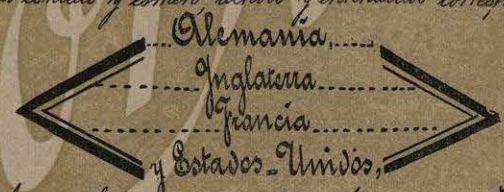 Alemania,
Inglaterra
Francia
y Estados-Unidos,